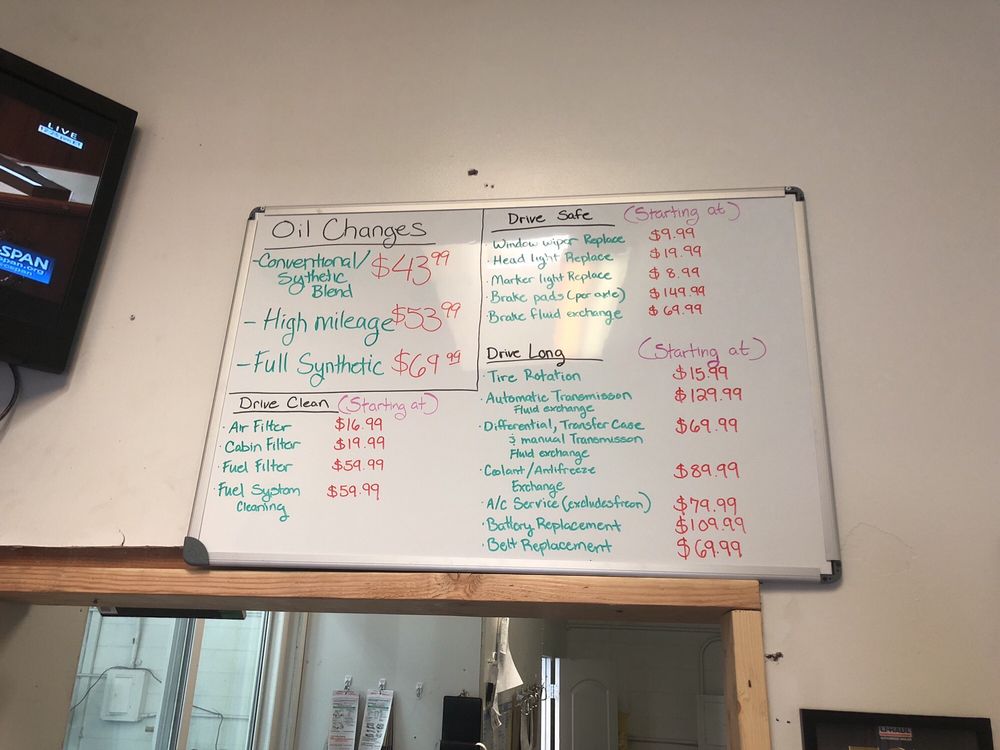 LIVE
SPAN
Oil Changes
-Conventional/ $43.99
Synthetic
Blend
- High mileage $53.99
- Full Synthetic $69.99
Drive Clean (Starting at)
· Air Filter $16.99
· Cabin Filter $19.99
· Fuel Filter $59.99
· Fuel System $59.99
Cleaning
Drive Safe (Starting at)
· Window wiper Replace $9.99
· Head light Replace $19.99
· Marker light Replace $8.99
· Brake pads (per axle) $149.99
· Brake fluid exchange $69.99
Drive Long (Starting at)
· Tire Rotation $15.99
· Automatic Transmisson $129.99
Fluid exchange
· Differential, Transfer Case $69.99
& manual Transmisson
Fluid exchange
· Coolant/Antifreeze $89.99
Exchange
· A/c Service (excludes freon) $79.99
· Battery Replacement $109.99
· Belt Replacement $69.99
U-HAUL